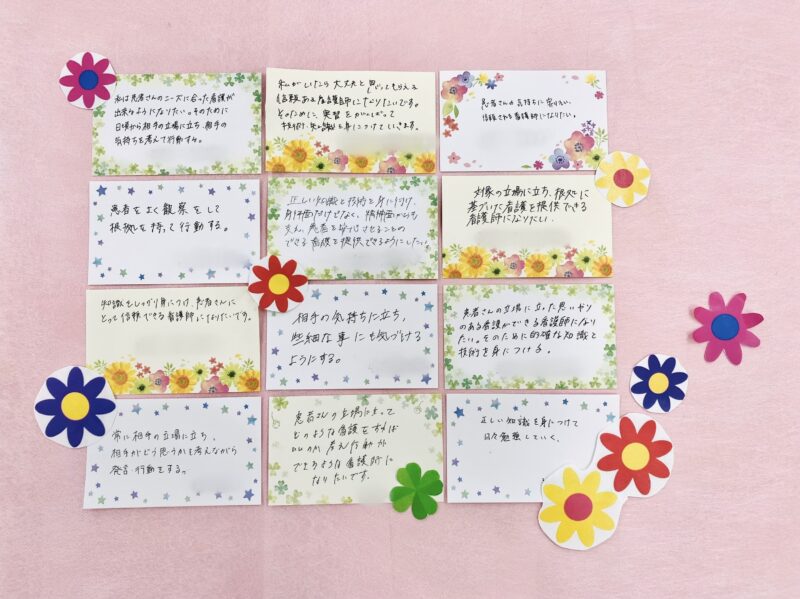 私は患者さんのニーズに合った看護が
出来るようになりたい。そのために
日頃から相手の立場に立ち、相手の
気持ちを考えて行動する。
私がしたら大丈夫と思ってもらえる
信頼ある看護師になりたいです。
そのために、実習をがんばって
技術や知識を身につけていきます。
患者さんの気持ちに寄りそい、
信頼される看護師になりたい。
患者をよく観察をして
根拠を持って行動する。
正しい知識と技術を身に付け、
身体面だけでなく、精神面からも
支え、患者を安心させることの
できる看護を提供できるようにしたい。
対象の立場に立ち、根拠に
基づいた看護を提供できる
看護師になりたい。
知識をしっかり身につけ、患者さんに
とって信頼できる看護師になりたいです。
相手の気持ちに立ち、
些細な事にも気づける
ようにする。
患者さんの立場に立った思いやり
のある看護ができる看護師になり
たい。そのために的確な知識と
技術を身につける。
常に相手の立場に立ち、
相手がどう思うかを考えながら
発言・行動をする。
患者さんの立場に立って
どのような看護をすれば
いいか考え行動が
できるような看護師に
なりたいです。
正しい知識を身につけて
日々勉強していく。